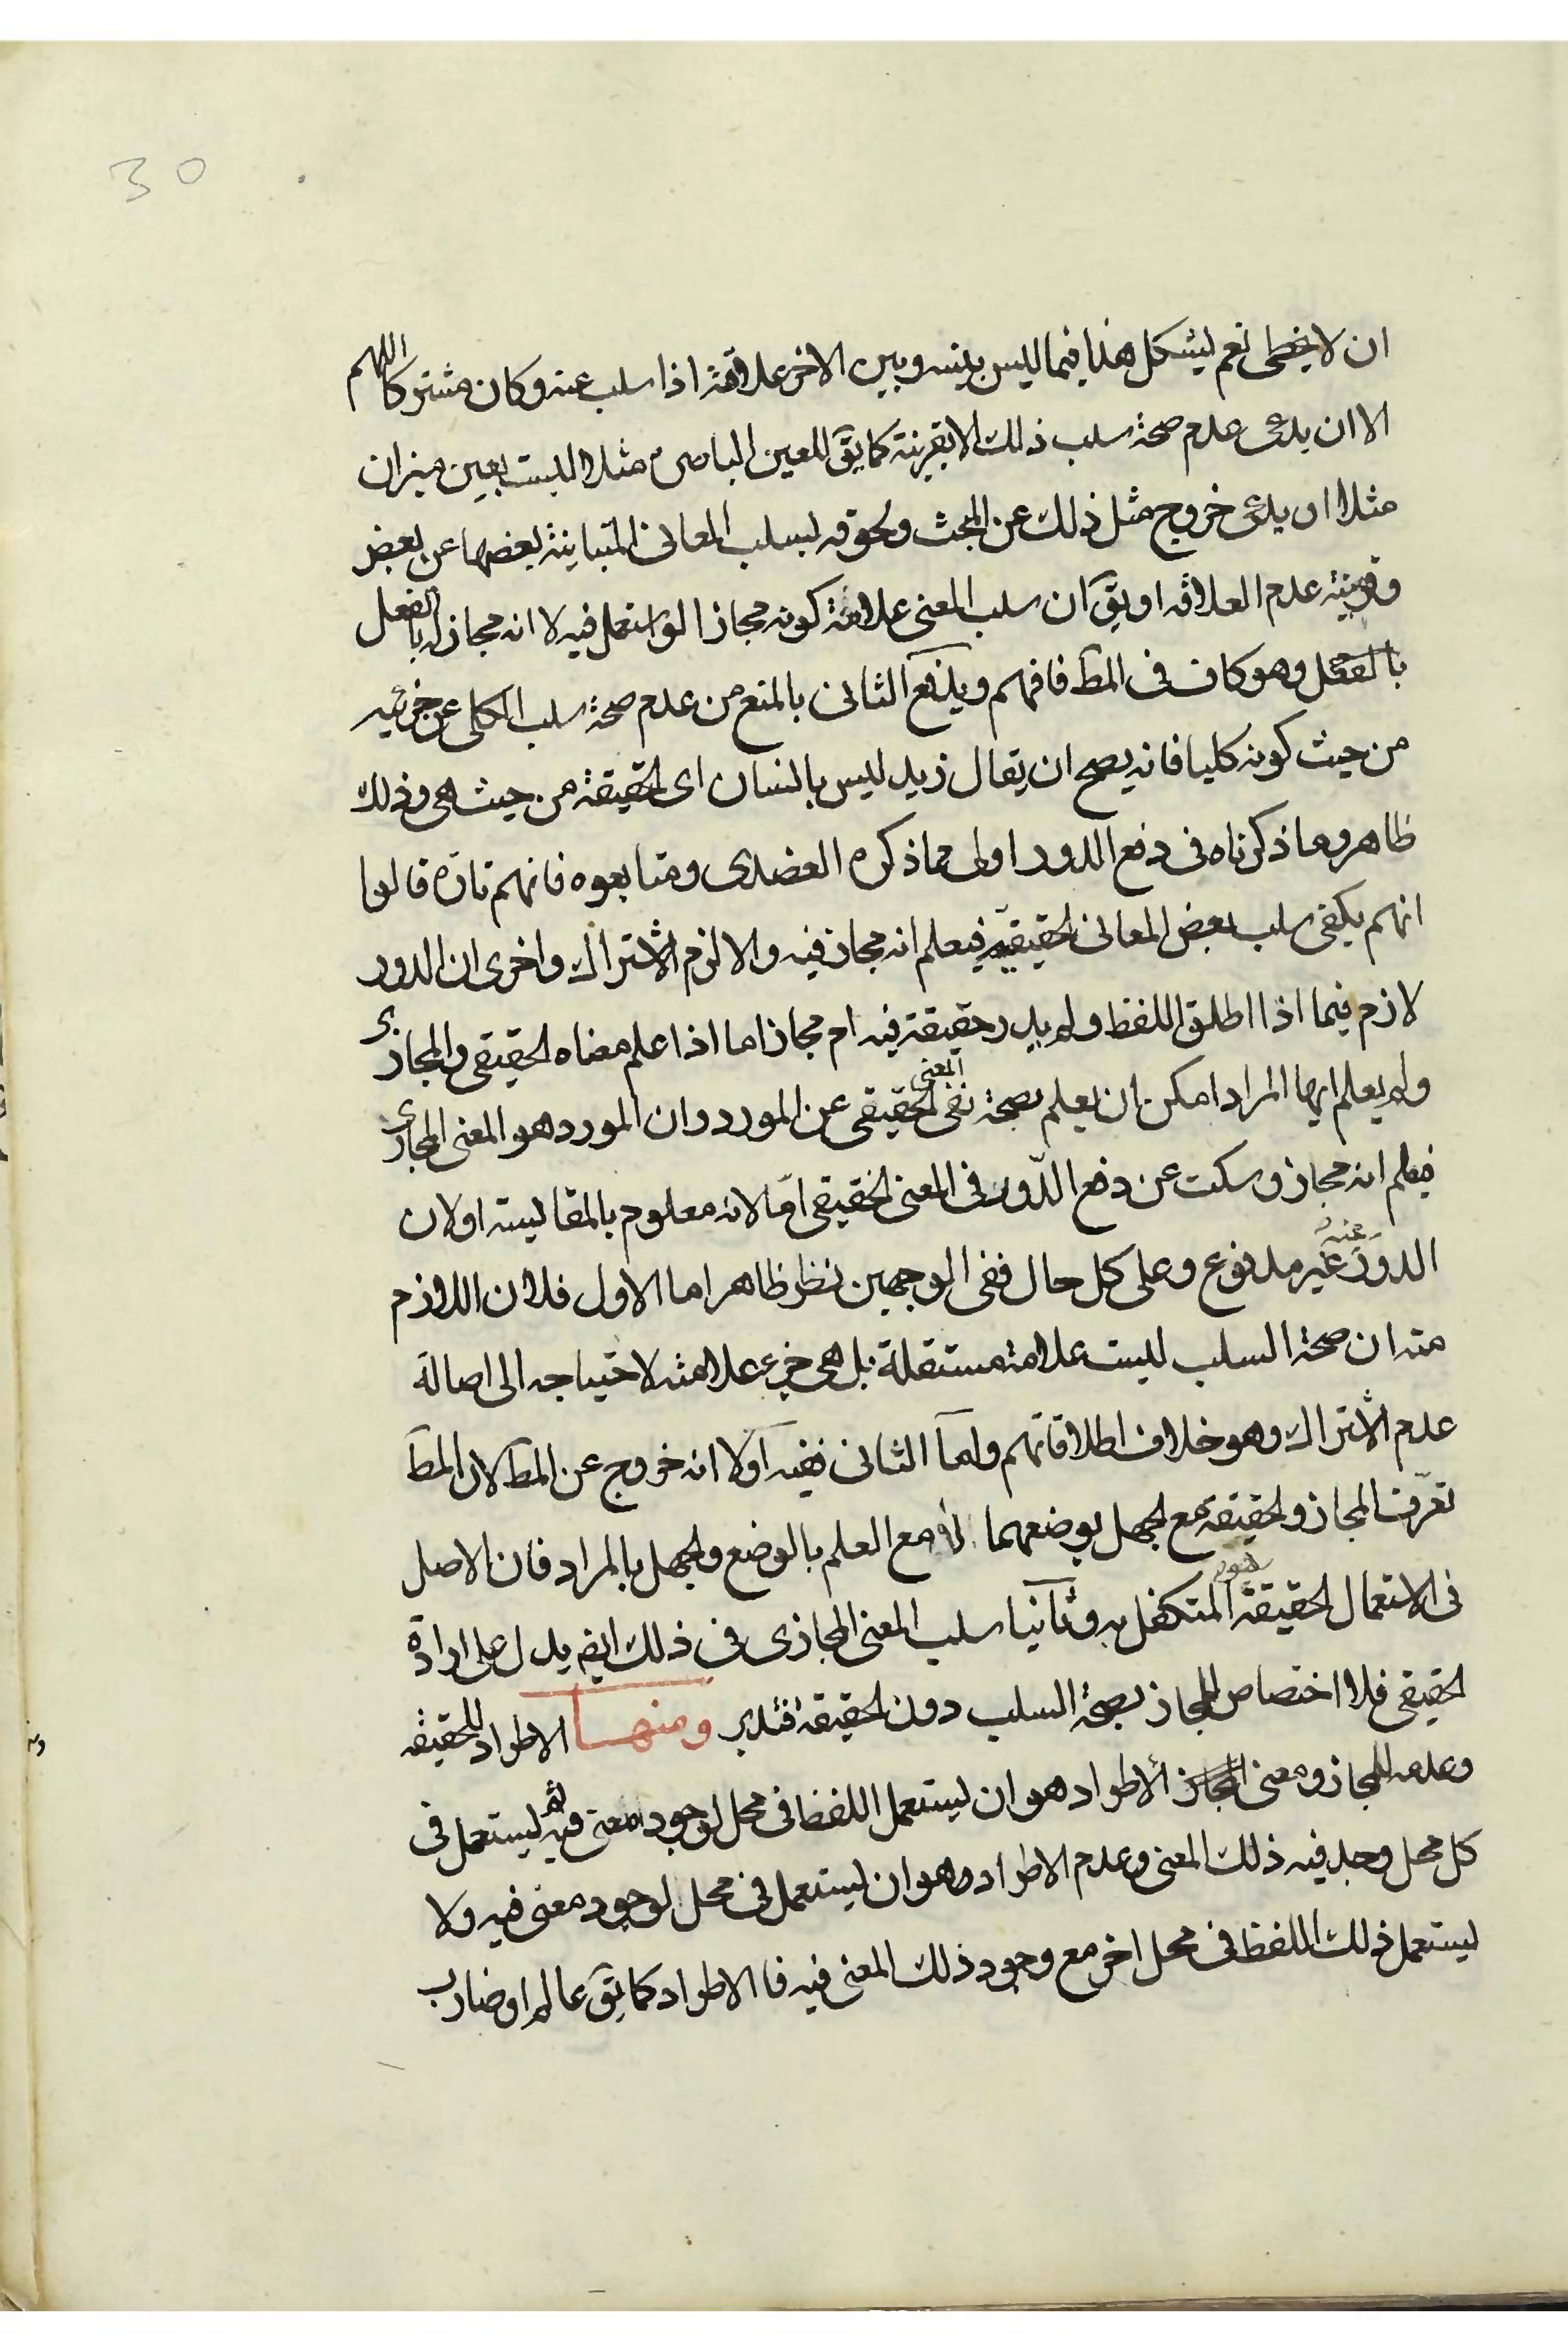 30
ان لا يخطى نعم ليشكل هذا فيما ليس بينه وبين الاخر علاقة اذا سلب عنه وكان مشتركا اللهم
الا ان يدعى عدم صحة سلب ذلك الا بقرينة كما يقٓ للعين الباصرة مثلا ليست بعين ميزان
مثلا او يدعى خروج مثل ذلك عن المبحث ولحوقه بسلب المعانى المتباينة بعضها عن بعض
وقرينته عدم العلاقه او يقٓ ان سلب المعنى علامة كونه مجازا لو استعمل فيه لا انه مجاز له بالفعل
بالفعل وهو كاف فى المطٓ فافهم ويدفع الثانى بالمنع من عدم صحة سلب الكلى عن جزئيه
من حيث كونه كليا فانه يصح ان يقال زيد ليس بانسان اى الحقيقة من حيث هى وذلك
ظاهر وما ذكرناه فى دفع الدور اولى مما ذكره العضدى ومتابعوه فانهم تارة قالوا
انهم يكفى سلب بعض المعانى الحقيقية فيعلم انه مجاز فيه والا لزم الاشتراك واخرى ان الدور
لازم فيما اذا اطلق اللفظ ولم يدر حقيقة فيه ام مجاز اما اذا علم معناه الحقيقى والمجازى
ولم يعلم ايها المراد امكن ان يعلم بصحة نفى المعنى الحقيقى عن المورد وان المورد هو المعنى المجازى
فيعلم انه مجاز وسكت عن دفع الدّور فى المعنى الحقيقى امّا لانه معلوم بالمقايسته او لان
الدور عنده غير مدفوع وعلى كل حال ففى الوجهين نظر ظاهر اما الاول فلان اللازم
منه ان صحة السلب ليست علامة مستقلة بل هى جزء علامة لاحتياجه الى اصالة
عدم الاشتراك وهو خلاف اطلاقاتهم واما الثانى ففيه اولا انه خروج عن المطٓ لان المطٓ
تعرّف المجاز والحقيقة مع الجهل بوضعهما لا مع العلم بالوضع والجهل بالمراد فان الاصل
فى الاستعمال الحقيقة هو المتكفل به وثانيا سلب المعنى المجازى فى ذلك ايضٓ يدل على ارادة
الحقيقى فلا اختصاص للمجاز بصحة السلب دون الحقيقة فتدبر ومنهـــا الاطراد للحقيقه
وعدمه للمجاز ومعنى الاطراد هو ان يستعمل اللفظ فى محل لوجود معنى فيه ثم يستعمل فى
كل محل وجد فيه ذلك المعنى وعدم الاطراد وهو ان يستعمل فى محل لوجود معنى فيه ولا
يستعمل ذلك اللفظ فى محل اخر مع وجود ذلك المعنى فيه فالاطراد كما يقٓ عالم او ضارب